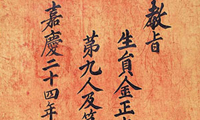 教旨
生員金正
第九人及第
嘉慶二十四年